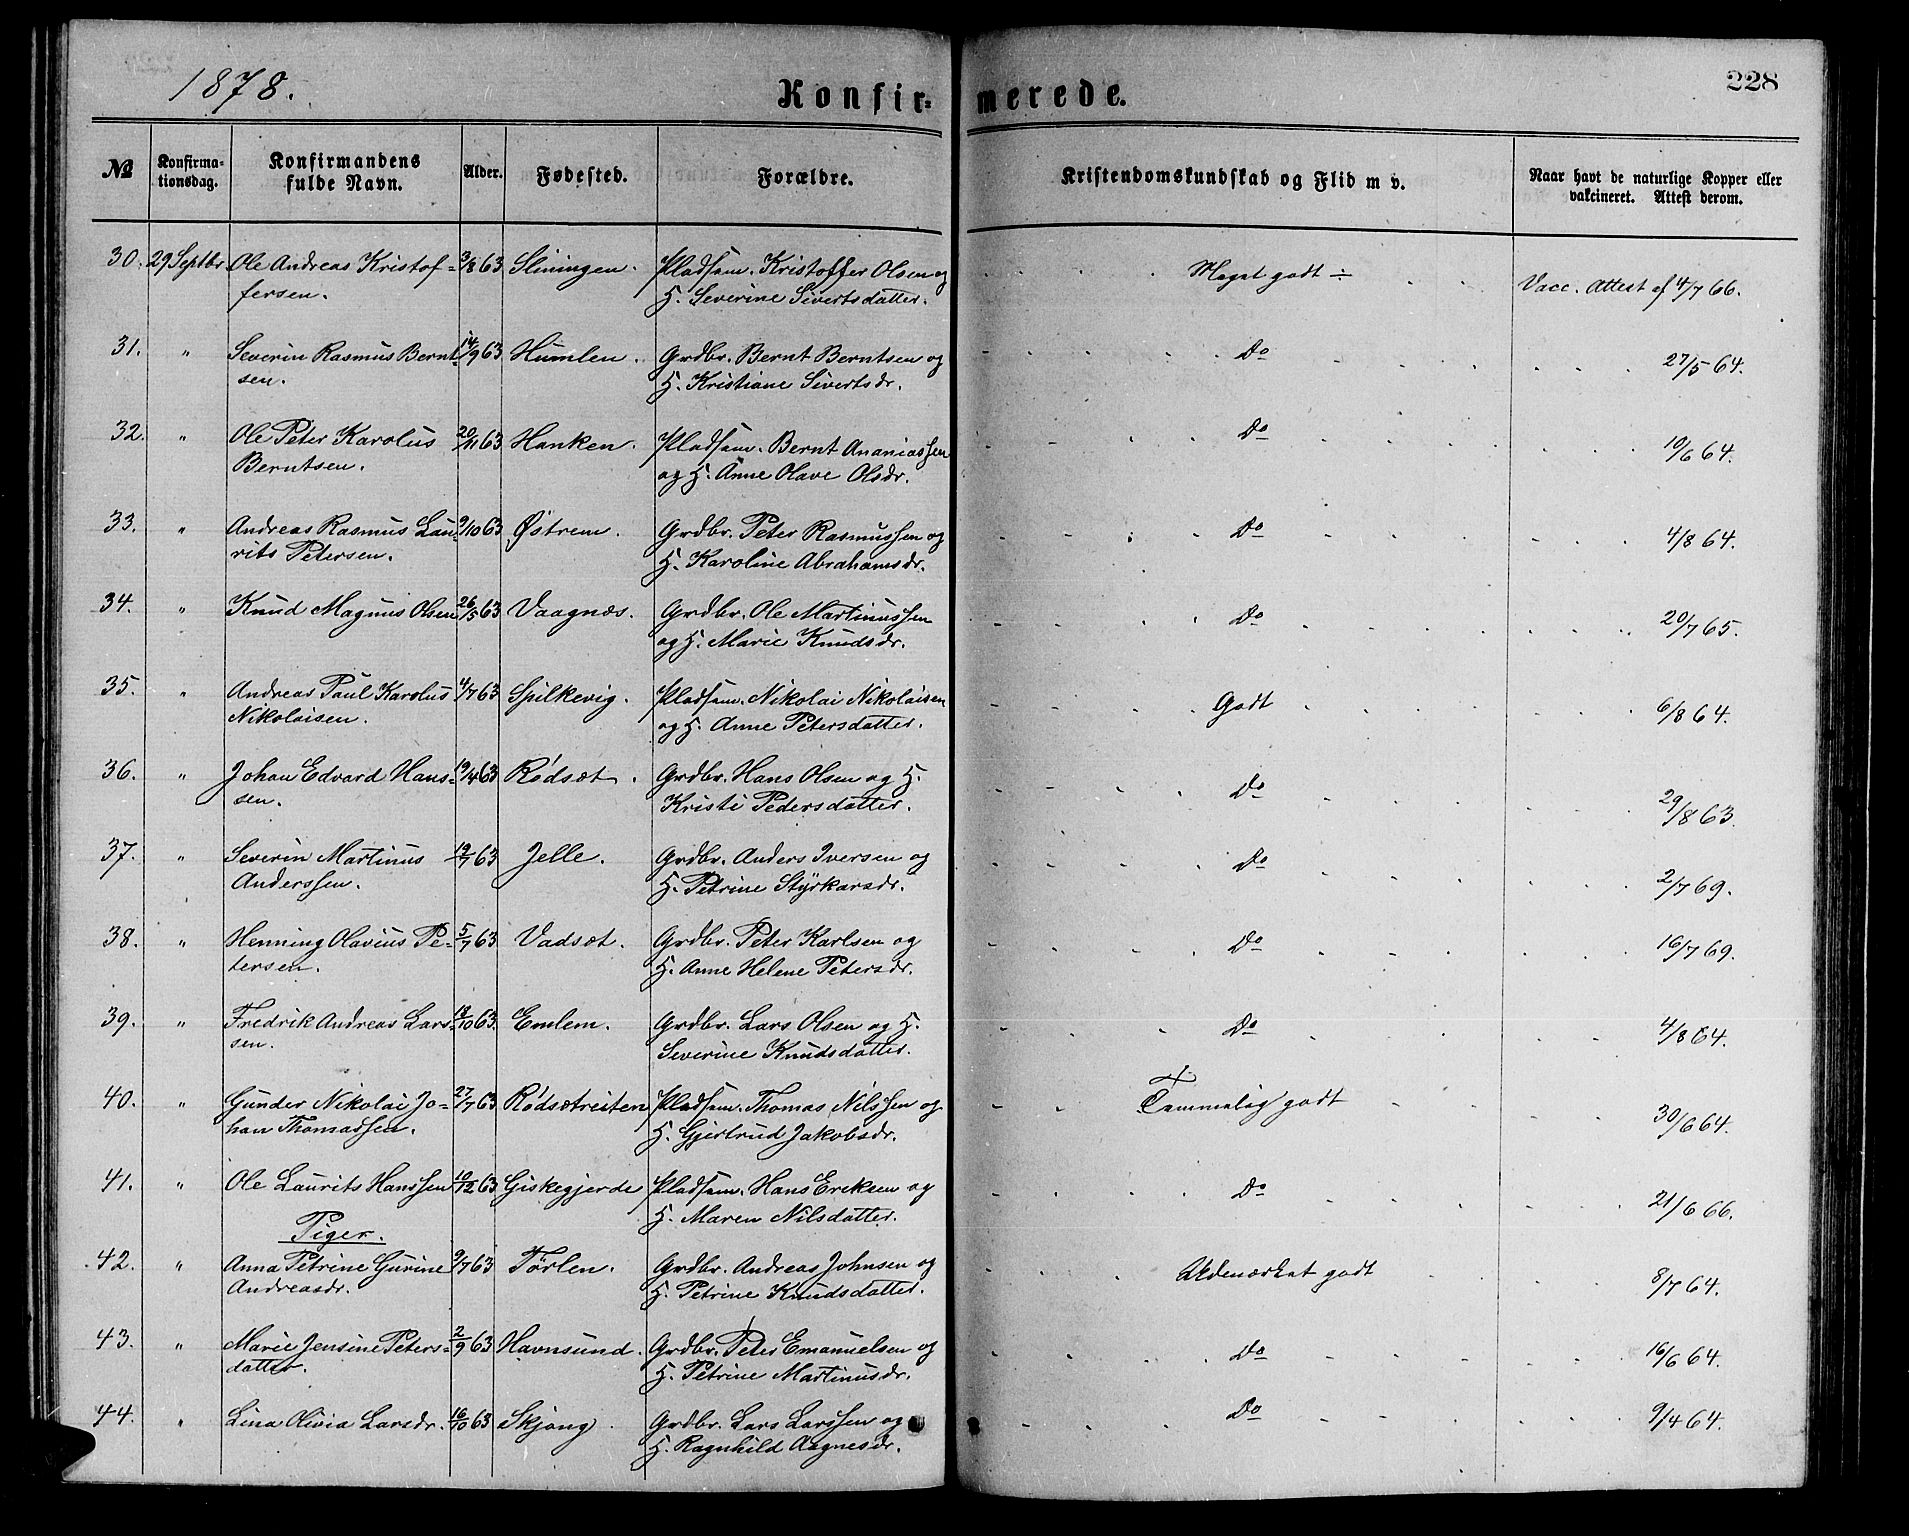 1878.
228
Konfir= merede.
№ Konfirma-tionsdag. Konfirmandens fulde Navn. Alder. Fødested. Forældre. Kristendomskundskab og Flid m v. Naar havt de naturlige Kopper eller vakcineret. Attest derom.
30. 29 Septbr. Ole Andreas Kristof= 3/8 63 Sliningen. Pladsm. Kristoffer Olsen og Meget godt ÷ Vacc. Attest af 4/7 66.
fersen. H. Severine Sivertsdatter.
31. " Severin Rasmus Bernt 14/9 63 Humlen. Grdbr. Bernt Berntsen og Do 27/5 64.
sen. H. Kristiane Sivertsdr.
32. " Ole Peter Karolus 20/11 63 Hanken. Pladsm. Bernt Ananiassen Do 10/6 64.
Berntsen. og H. Anne Olave Olsdr.
33. " Andreas Rasmus Lau= 9/10 63 Østrem. Grdbr. Peter Rasmussen og Do 4/8 64.
rits Petersen. H. Karoline Abrahamsdr.
34. " Knud Magnus Olsen 26/5 63 Vaagnæs. Grdbr. Ole Martinussen Do 20/7 65.
og H. Marie Knudsdr.
35. " Andreas Paul Karolus 4/7 63 Spilkevig. Pladsm. Nikolai Nikolaisen Godt 6/8 64.
Nikolaisen. og H. Anne Petersdatter.
36. " Johan Edvard Hans= 19/4 63 Rødsæt. Grdbr. Hans Olsen og H. Do 29/8 63.
sen. Kristi Pedersdatter.
37. " Severin Martinus 19/7 63 Jelle. Grdbr. Anders Iversen og Do 2/7 69.
Anderssen. H. Petrine Styrkarsdr.
38. " Henning Olavius Pe= 5/7 63 Vadsæt. Grdbr. Peter Karlsen og Do 16/7 69.
tersen. H. Anne Helene Petersdr.
39. " Fredrik Andreas Lars= 18/10 63. Emlem. Grdbr. Lars Olsen og H. Do 4/8 64.
sen. Severine Knudsdatter.
40. " Gunder Nikolai Jo= 27/7 63 Rødsætreiten Pladsm. Thomas Nilssen og Temmelig godt 30/6 64.
han Thomassen. H. Gjertrud Jakobsdr.
41. " Ole Laurits Hanssen 10/12 63 Giskegjerde Pladsm. Hans Eriksen og Do 21/6 66.
H. Maren Nilsdatter.
Piger.
42. " Anna Petrine Gurine 9/7 63 Tørlen. Grdbr. Andreas Johnsen og Udmærket godt 8/7 64.
Andreasdr. H. Petrine Knudsdatter.
43. " Marie Jensine Peters= 2/9 63 Havnsund. Grdbr. Peter Emanuelsen og Do 16/6 64.
datter. H. Petrine Martinusdr.
44. " Lina Olivia Larsdr. 16/10 63 Skjong. Grdbr. Lars Larssen og Do 9/4 64.
H. Ragnhild Aagnesdr.